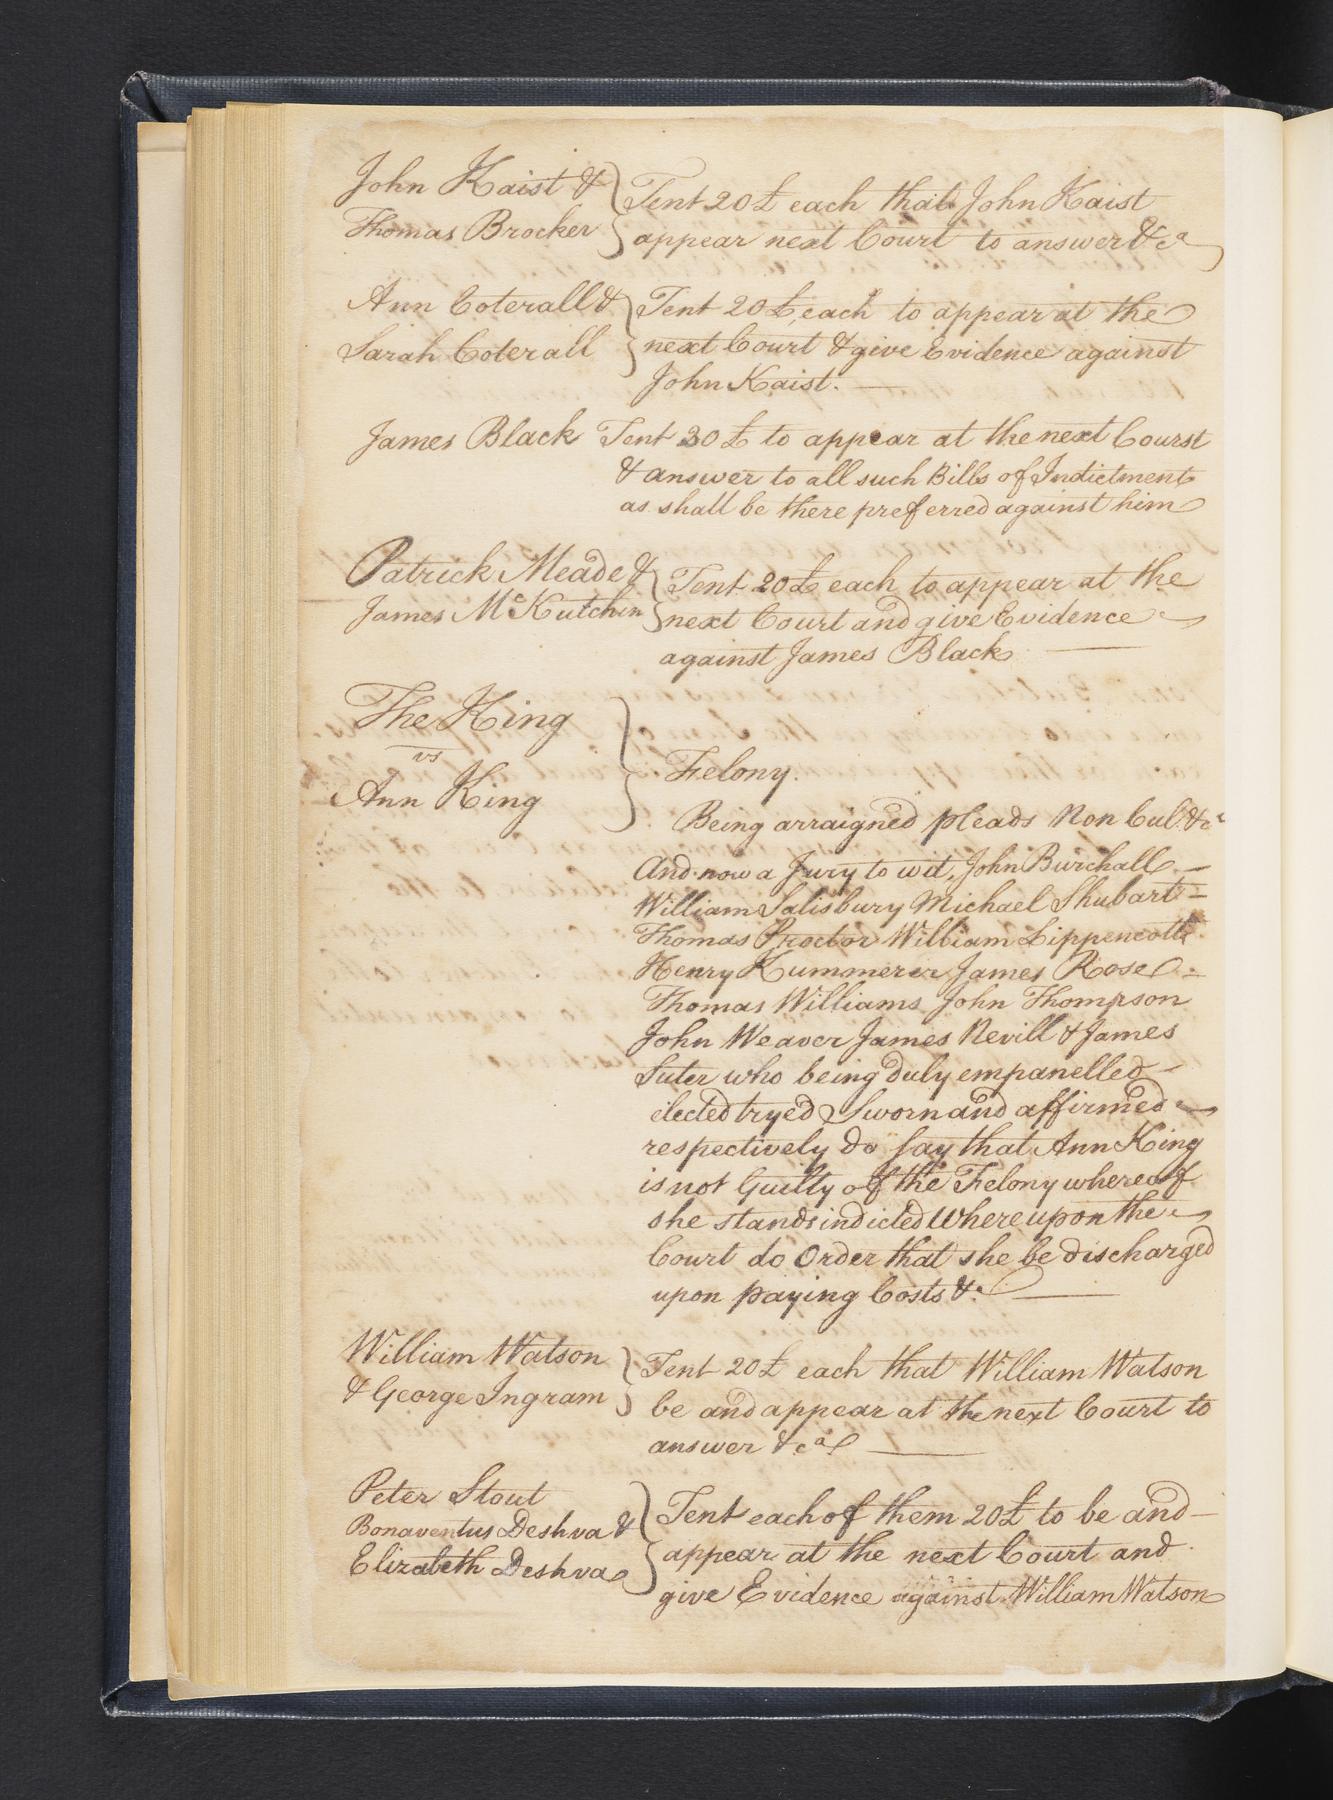 John Kaist &
Thomas Brocker
Tent 20£ each that John Kaist
appear next Court to answer &ca
Ann Coterall &
Sarah Coterall
Tent 20£ each to appear at the
next Court & give Evidence against
John Kaist.
James Black Tent 30£ to appear at the next Courst
& answer to all such Bills of Indictment
as shall be there preferred against him
Patrick Meade &
James McKutchin
Tent 20£ each to appear at the
next Court and give Evidence
against James Black
The King
vs
Ann King
Felony.
Being arraigned pleads Non Cul. &c
And now a Jury to wit, John Burchall
William Salisbury Michael Shubart
Thomas Proctor William Lippencott
Henry Kummerer James Rose
Thomas Williams John Thompson
John Weaver James Nevill & James
Suter who being duly empanelled
elected tryed Sworn and affirmed
respectively do say that Ann King
is not Guilty of the Felony whereof
she stands indicted Whereupon the
Court do Order that she be discharged
upon paying Costs &c
William Watson
& George Ingram
Tent 20£ each that William Watson
be and appear at the next Court to
answer &ca
Peter Stout
Bonaventus Deshva &
Elizabeth Deshva
Tent each of them 20£ to be and
appear at the next Court and
give Evidence against William Watson